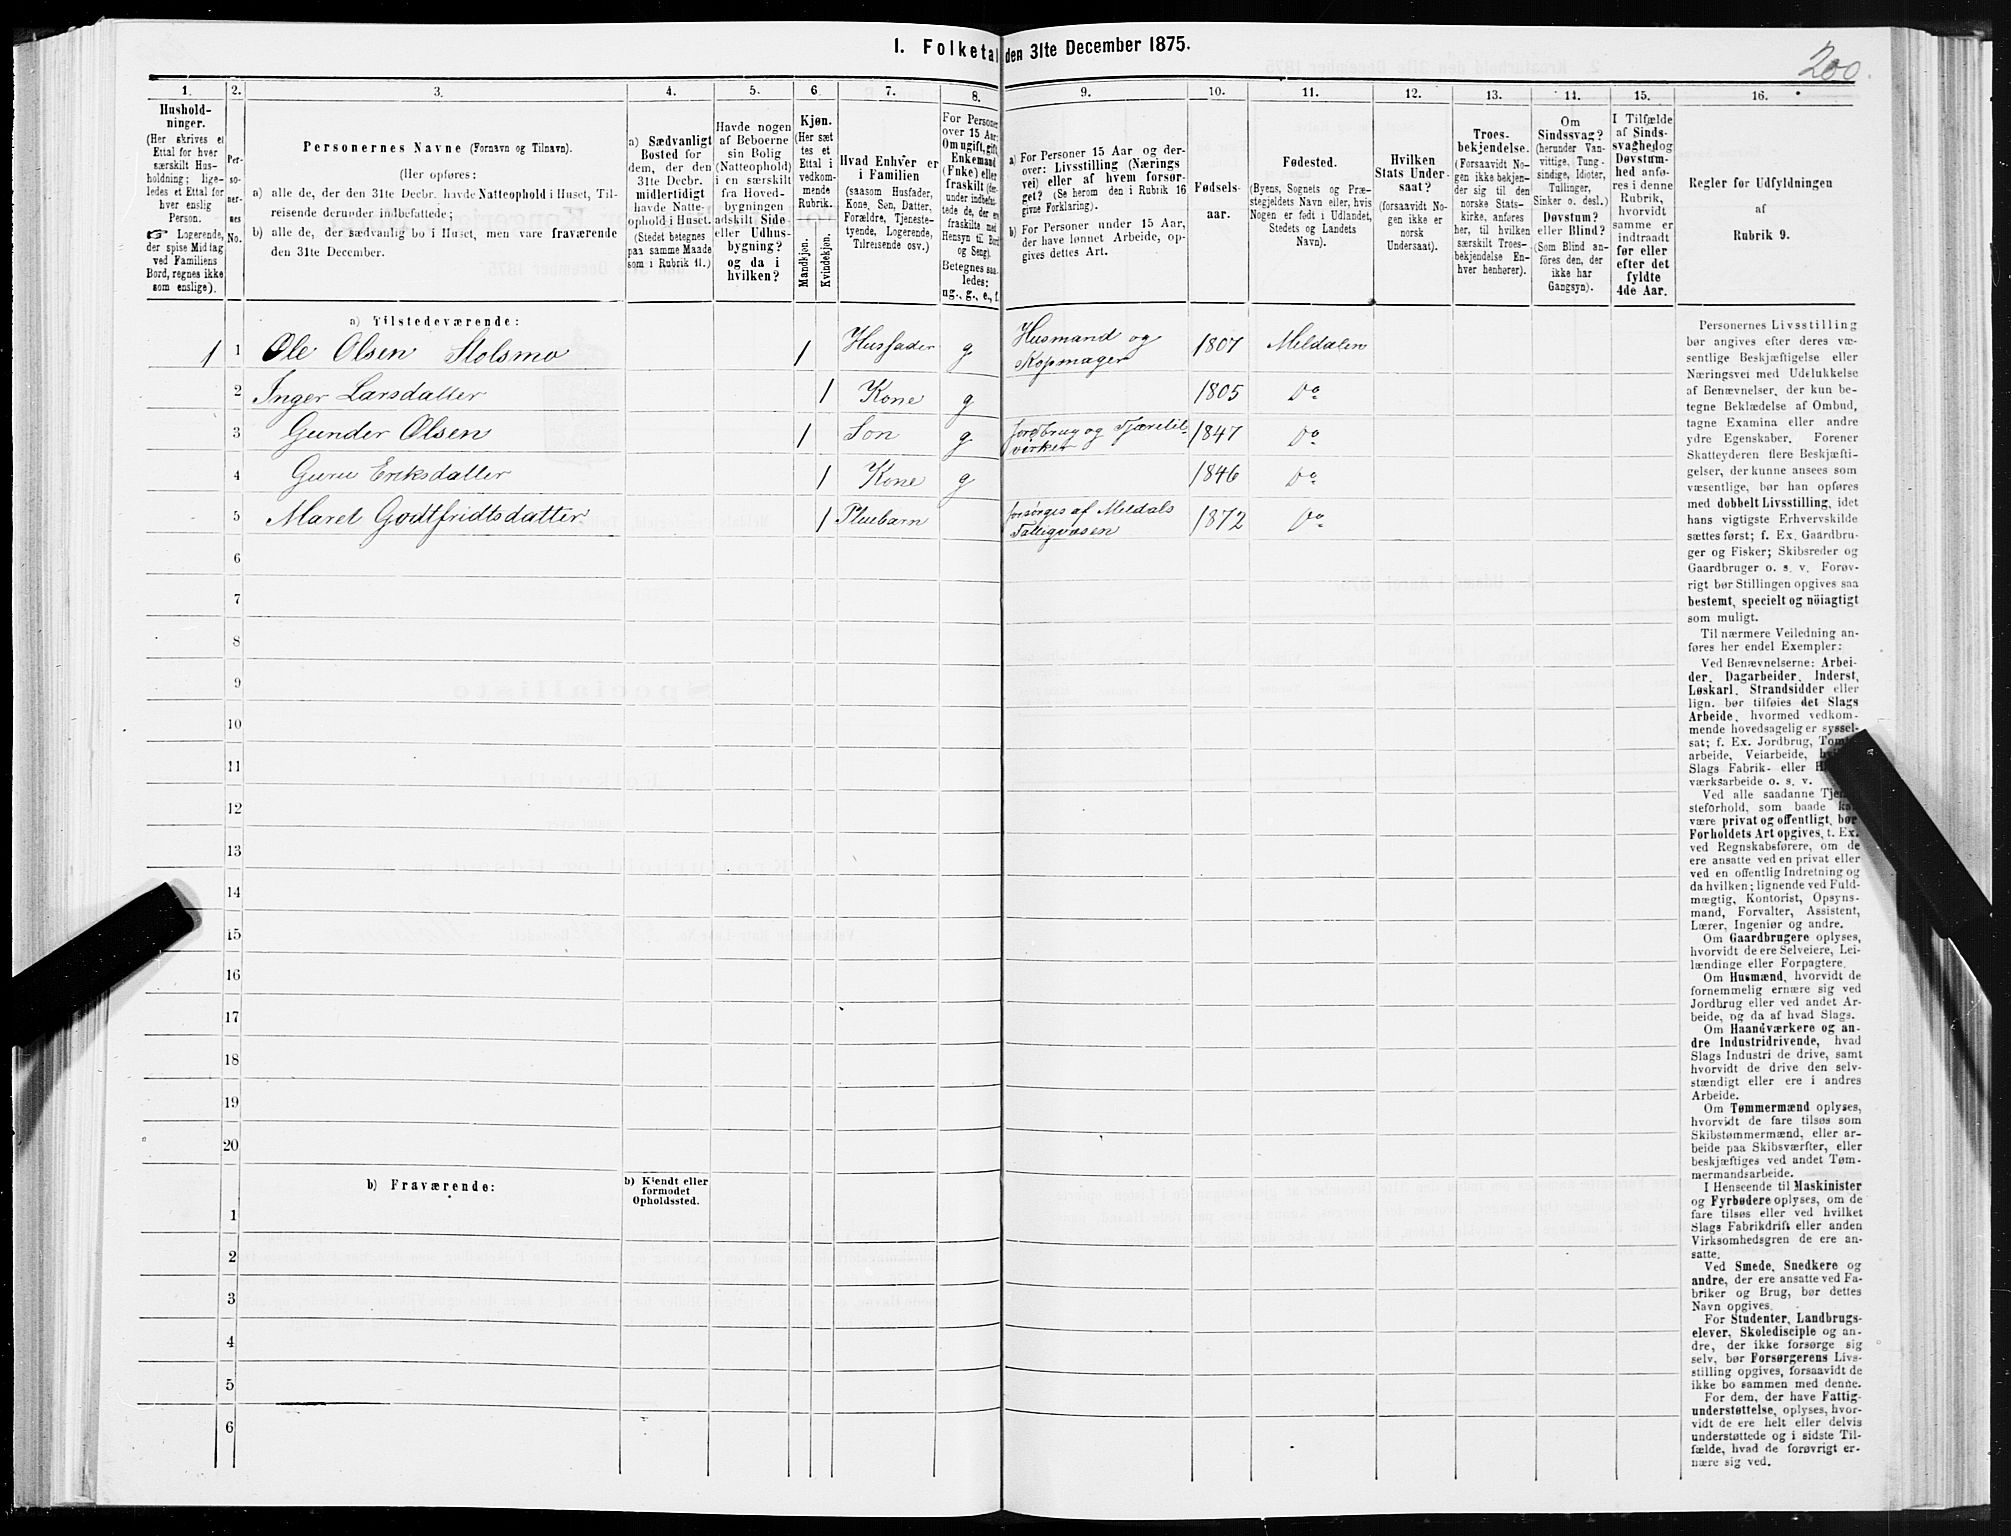 1. Folketal den 31te December 1875.
200.
1.
Hushold-
ninger.
(Her skrives et
Ettal for hver
særskilt Hus-
holdning; lige-
ledes et Ettal for
hver enslig
Person.
☞ Logerende,
der spise Middag
ved Familiens
Bord, regnes ikke
som enslige).
2.
Per-
so-
ner-
nes
No.
3.
Personernes Navne (Fornavn og Tilnavn).
(Her opføres:
a) alle de, der den 31te Decbr. havde Natteophold i Huset, Til-
reisende derunder indbefattede;
b) alle de, der sædvanlig bo i Huset, men vare fraværende
den 31te December.
4.
a) Sædvanligt
Bosted for
dem, der den
31te Decbr.
midlertidigt
havde Natte-
ophold i Huset.
(Stedet betegnes
paa samme Maade
som i Rubrik 11.)
5.
Havde nogen
af Beboerne
sin Bolig
(Natteophold)
i en særskilt
fra Hoved-
bygningen
adskilt Side-
eller Udhus-
bygning?
og da i
hvilken?
6.
Kjøn.
(Her sæt-
tes et
Ettal i
vedkom-
mende
Rubrik.
Mandkjøn.
Kvindekjøn.
7.
Hvad Enhver er
i Familien
(saasom Husfader,
Kone, Søn, Datter,
Forældre, Tjeneste-
tyende, Logerende,
Tilreisende osv.)
8.
For Personer
over 15 Aar:
Om ugift, gift,
Enkemand
(Enke) eller
fraskilt (der-
under indbefat-
tede de, der ere
fraskilte med
Hensyn til Bord
og Seng).
Betegnes saa-
ledes:
ug., g., e., f.
9.
a) For Personer 15 Aar og der-
over: Livsstilling (Nærings-
vei) eller af hvem forsør-
get? (Se herom den i Rubrik 16
givne Forklaring).
b) For Personer under 15 Aar,
der have lønnet Arbeide, op-
gives dettes Art.
10.
Fødsels-
aar.
11.
Fødested.
(Byens, Sognets og Præ-
stegjeldets Navn eller, hvis
Nogen er født i Udlandet,
Stedets og Landets
Navn).
12.
Hvilken
Stats Under-
saat?
(forsaavidt No-
gen ikke er
norsk
Undersaat).
13.
Troes-
bekjendelse.
(Forsaavidt No-
gen ikke bekjen-
der sig til den
norske Stats-
kirke, anføres
her, til hvilken
særskilt Troes-
bekjendelse En-
hver henhører).
14.
Om
Sindssvag?
(herunder Van-
vittige, Tung-
sindige, Idioter,
Tullinger,
Sinker o. desl.)
Døvstum?
eller Blind?
(Som Blind an-
føres den, der
ikke har
Gangsyn).
15.
I Tilfælde
af Sinds-
svaghed og
Døvstum-
hed anfø-
res i denne
Rubrik,
hvorvidt
samme er
indtraadt
før eller
efter det
fyldte
4de Aar.
16.
Regler før Udfyldningen
af
Rubrik 9.
a) Tilstedeværende:
1 1 Ole Olsen Stolsmo 1 Husfader g Husmand og
Kopmager 1807 Meldalen
2 Inger Larsdatter 1 Kone g 1805 Do
3 Gunder Olsen 1 Søn g Jordbrug og Tjæretil-
virker 1847 Do
4 Guru Eriksdatter 1 Kone g 1846 Do
5 Maret Godtfridtsdatter 1 Pleiebarn forsørges af Meldals
Fattigvæsen 1872 Do
6
7
8
9
10
11
12
13
14
15
16
17
18
19
20
b) Fraværende:
b) Kjendt eller
formodet
Opholdssted.
1
2
3
4
5
6
Personernes Livsstilling
bør angives efter deres væ-
sentlige Beskjæftigelse eller
Næringsvei med Udelukkelse
af Benævnelser, der kun be-
tegne Beklædelse af Ombud,
tagne Examina eller andre
ydre Egenskaber. Forener
Skatteyderen flere Beskjæfti-
gelser, der kunne ansees som
væsentlige, bør han opføres
med dobbelt Livsstilling, idet
hans vigtigste Erhvervskilde
sættes først; f. Ex. Gaardbru-
ger og Fisker; Skibsreder og
Gaardbruger o. s. v. Forøv-
rigt bør Stillingen opgives saa
bestemt, specielt og nöiagtigt
som muligt.
Til nærmere Veiledning an-
føres her endel Exempler:
Ved Benævnelserne: Arbei-
der, Dagarbeider, Inderst,
Løskarl, Strandsidder eller
lign. bør tilføies det Slags
Arbeide, hvormed vedkom-
mende hovedsagelig er syssel-
sat; f. Ex. Jordbrug, Tomt-
arbeide, Veiarbeide,
Slags Fabrik- eller
værksarbeide o. s. v.
Ved alle saadanne Tjene-
steforhold, som baade kan
være privat og offentligt, bør
Forholdets Art opgives, t. Ex.
ved Regnskabsførere, om de
ere ansatte ved en privat eller
ved en offentlig Indretning og
da hvilken; lignende ved Fuld-
mægtig, Kontorist, Opsyns-
mand, Forvalter, Assistent,
Lærer, Ingeniør og andre.
Om Gaardbrugere oplyses,
hvorvidt de ere Selveiere, Lei-
lændinge eller Forpagtere.
Om Husmænd, hvorvidt de
fornemmelig ernære sig ved
Jordbrug eller ved andet Ar-
beide, og da af hvad Slags.
Om Haandværkere og an-
dre Industridrivende, hvad
Slags Industri de drive, samt
hvorvidt de drive den selv-
stændigt eller ere i andres
Arbeide.
Om Tømmermænd oplyses,
hvorvidt de fare tilsøs som
Skibstømmermænd, eller ar-
beide paa Skibsværfter, eller
beskjæftiges ved andet Tøm-
mermandsarbeide.
I Henseende til Maskinister
og Fyrbødere oplyses, om de
fare tilsøs eller ved hvilket
Slags Fabrikdrift eller anden
Virksomhedsgren de ere an-
satte.
Ved Smede, Snedkere og
andre, der ere ansatte ved Fa-
briker og Brug, bør dettes
Navn opgives.
For Studenter, Landbrugs-
elever, Skoledisciple og an-
dre, der ikke forsørge sig
selv, bør Forsørgerens Livs-
stilling opgives, forsaavidt de
ikke bo sammen med denne.
For dem, der have Fattig-
understøttelse, oplyses, hvor-
vidt de ere helt eller delvis
understøttede og i sidste Til-
fælde, hvad de forøvrigt er-
nære sig ved.